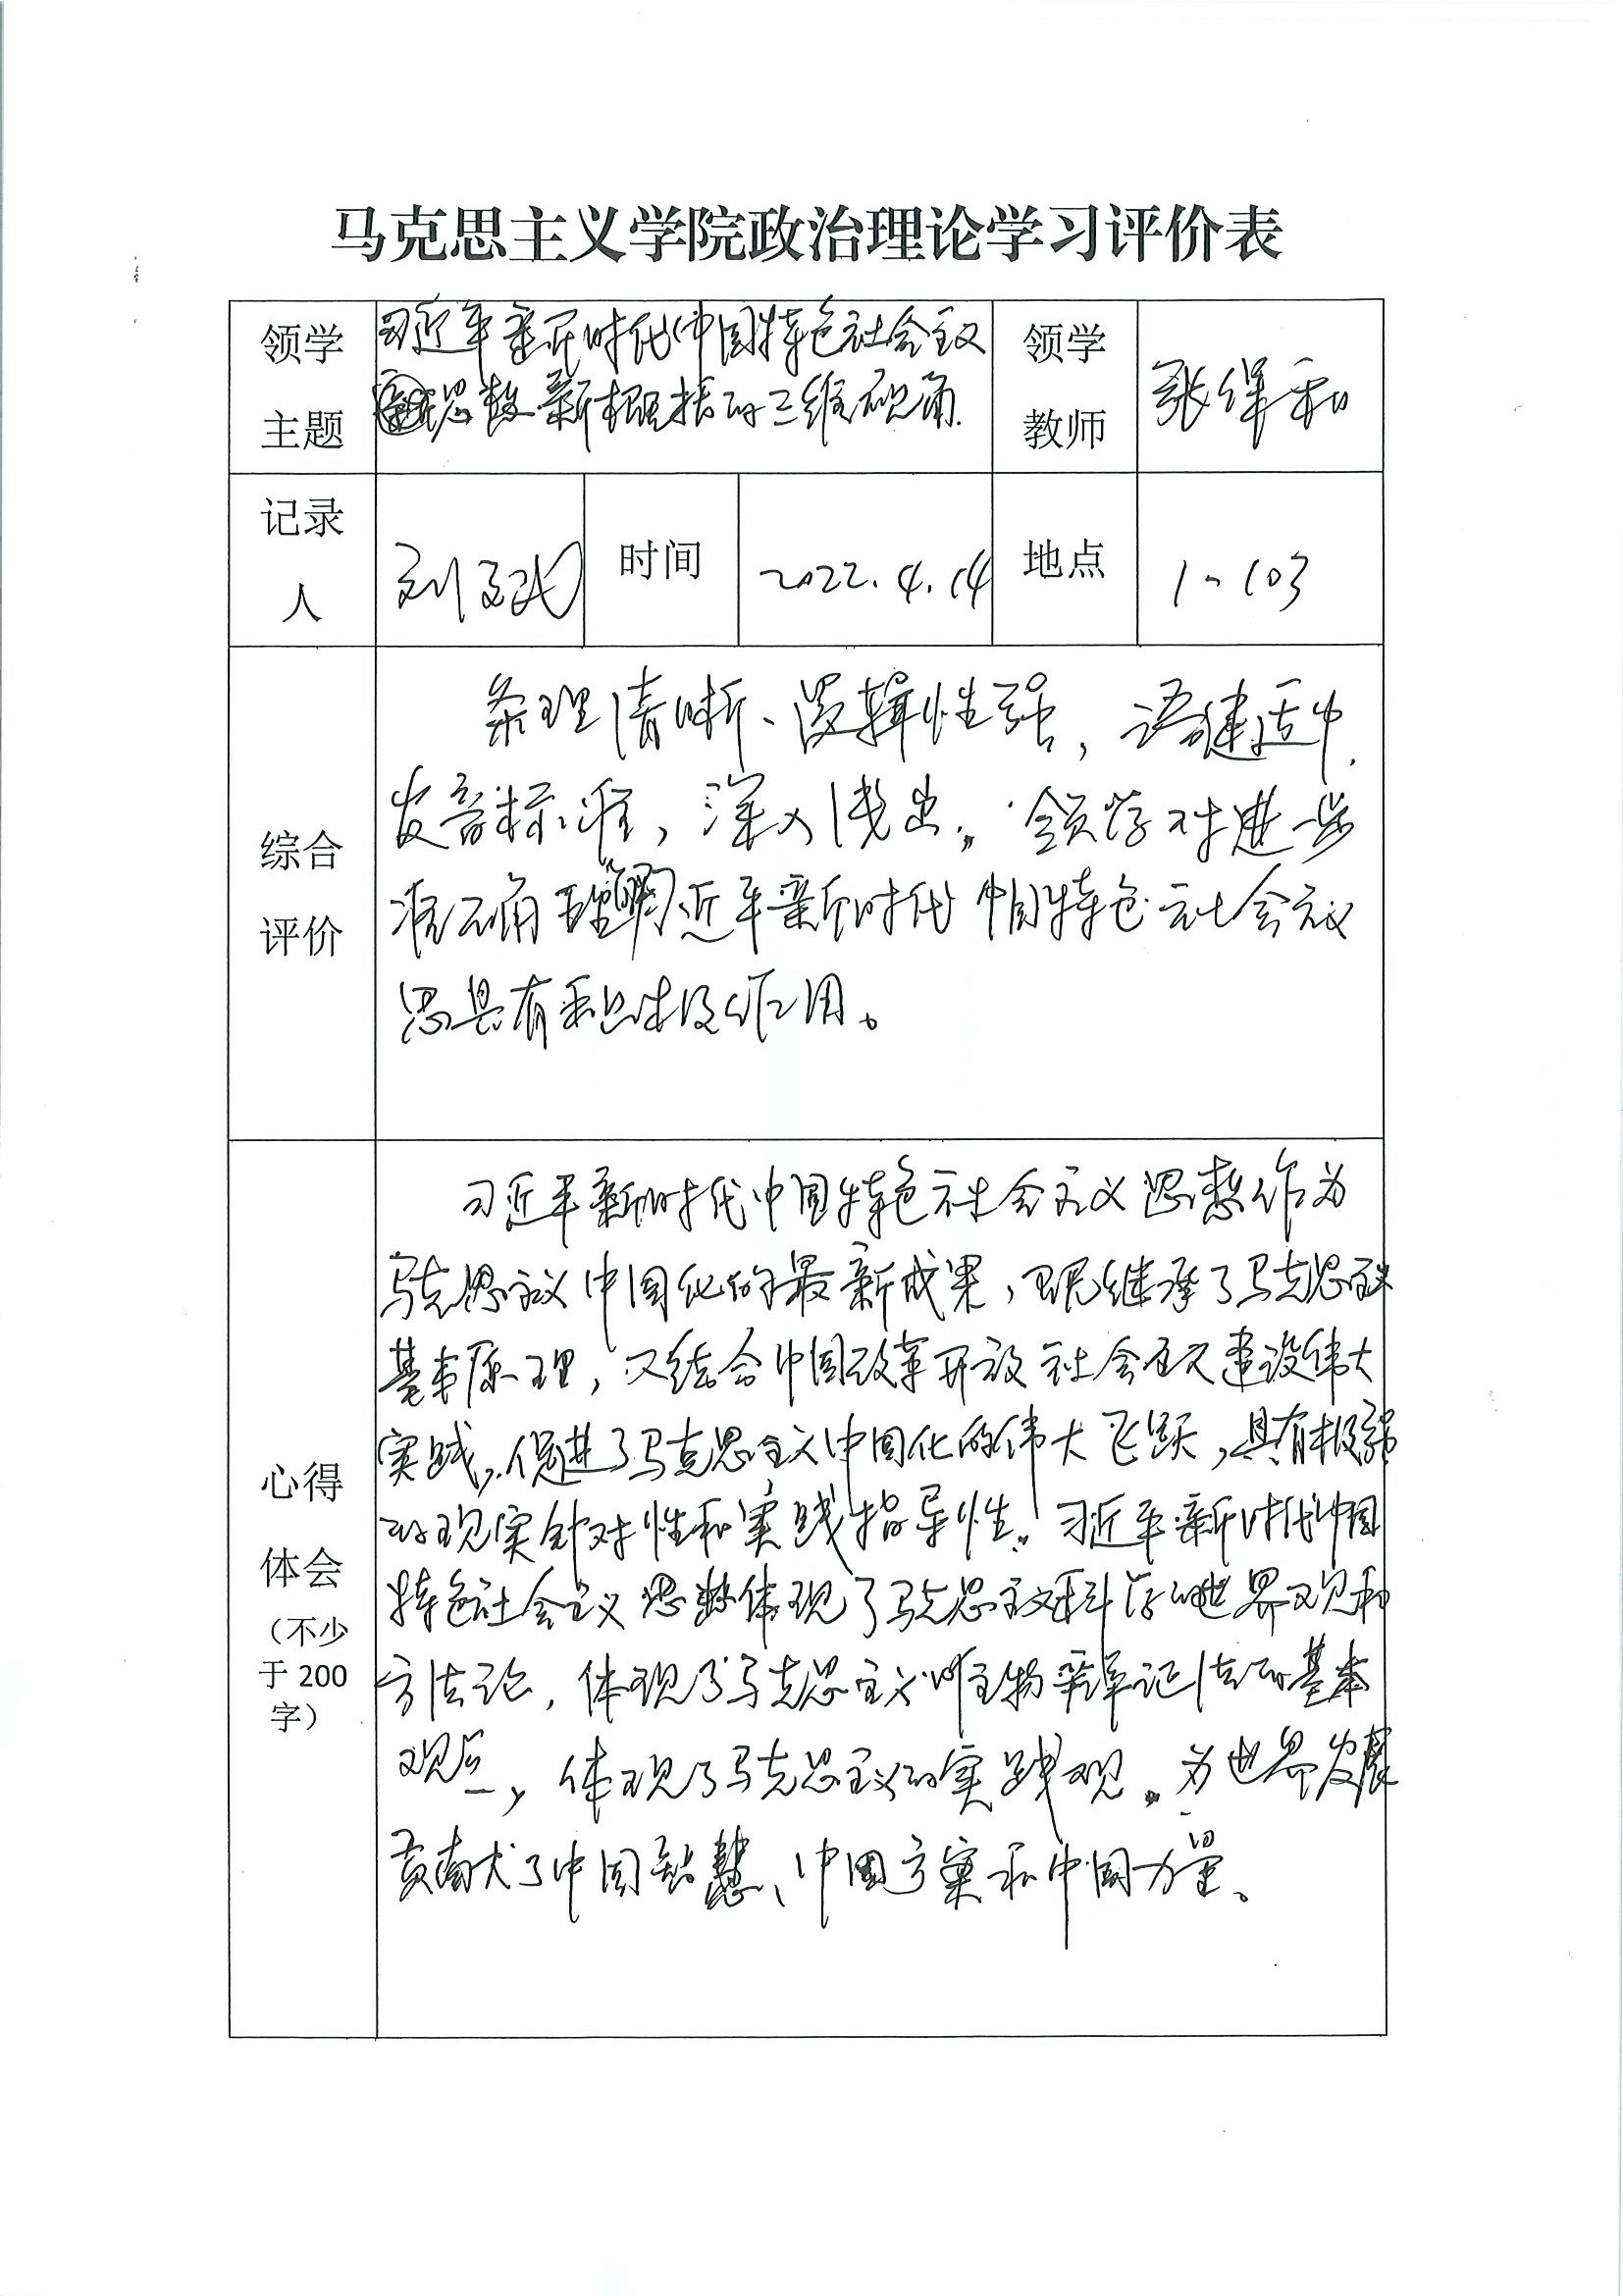 马克思主义学院政治理论学习评价表
领学
主题
习近平新时代中国特色社会主义
思想新概括的三维视角
领学
教师
张
和
记录
人
刘
时间
2022.4.14
地点
1-103
综合
评价
条理清晰、逻辑性强，语速适中，
发音标准，深入浅出。领学对进一步
准确理解习近平新时代中国特色社会主义
思具有积极作用。
心得
体会
（不少
于 200
字）
习近平新时代中国特色社会主义思想作为
马克思主义中国化的最新成果，既继承了马克思主义
基本原理，又结合中国改革开放社会主义建设伟大
实践，促进了马克思主义中国化的伟大飞跃，具有极强
的现实针对性和实践指导性。习近平新时代中国
特色社会主义思想体现了马克思主义科学的世界观和
方法论，体现了马克思主义唯物辩证法的基本
观点，体现了马克思主义的实践观。为世界发展
贡献了中国智慧、中国方案和中国力量。